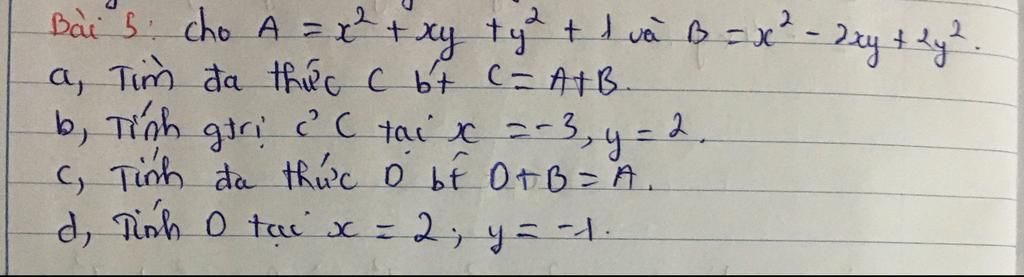 Bài 5: Cho A = x² + xy + y² + 1 và B = x² - 2xy + 2y².
a, Tìm đa thức C bt C = A+B.
b, Tính gtrị c² C tại x = -3, y = 2.
c, Tính đa thức D bt D+B = A.
d, Tính D tại x = 2; y = -1.